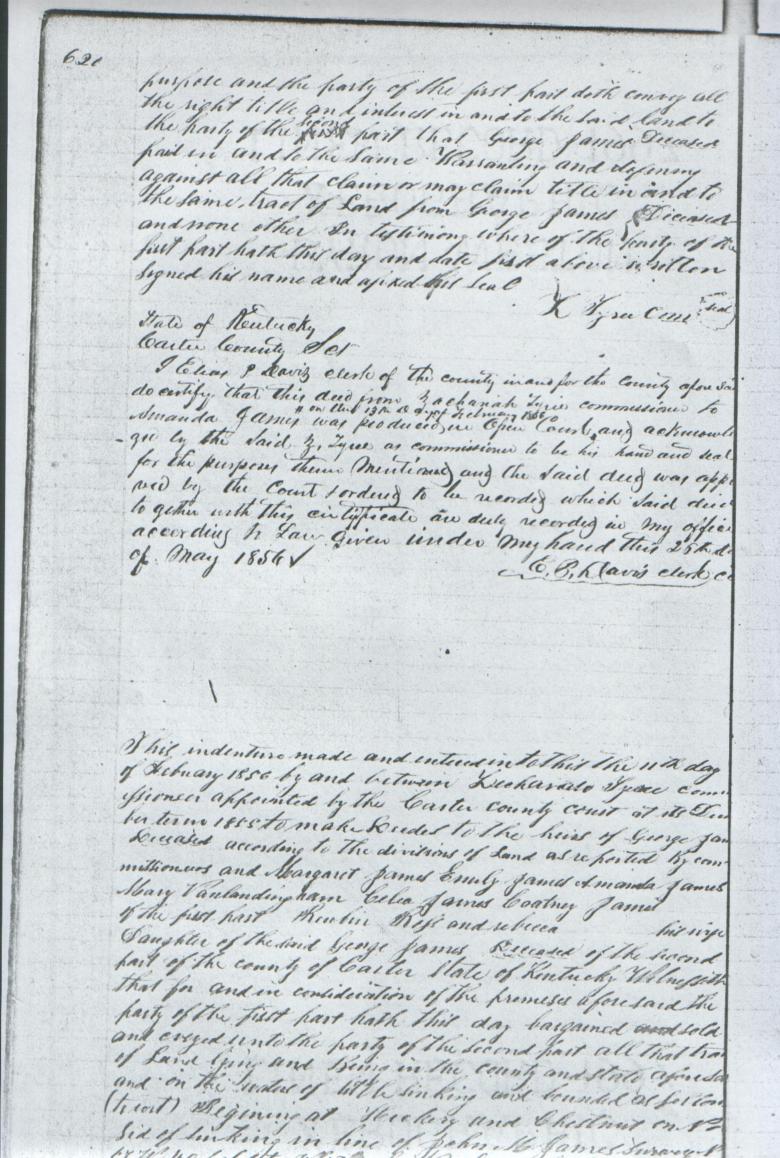 620
purpose and the party of the first part doth convey all
the right title and interest in and to the said Land to
the party of the second part that George James Deceased
had in and to the same Warranting and defening
against all that claim or may claim title in and to
the same tract of Land from George James Deceased
and none other In testimony where of the party of the
first part hath this day and date first above written
signed his name and afixed his Seal
Z Tyree Com (seal)
State of Kentucky
Carter County Sct
I Elias P Davis clerk of the county in and for the county afore sai
do certify that this deed from Zachariah Tyree commissioner to
Amanda James " on the 12th Day of February 1856 " was produced in Open Court and acknowle
ged by the Said Z. Tyree as commissioner to be his hand and seal
for the purposes therein Mentioned and the said deed was appr
ved by the Court & ordered to be recorded which said deed
to gether with this certificate are duly recorded in my office
according to Law Given under my hand this 25th d
of May 1856
E. P. Davis clerk cc
This indenture made and entered in to this the 11th day
of February 1856 by and between Zachariah Tyree comm
issioner appointed by the Carter county court at its Decem
ber term 1855 to make Deedes to the heirs of George Jam
Deceased according to the divitions of Land as reported by com
mittioners and Margaret James Emily James Amanda James
Mary Vanlandingham Celia James Coatney James
of the first part Reubin Ross and rebecca his wife
Daughter of the said George James Deceased of the second
part of the county of Carter State of Kentucky Witnesseth
that for and in consideration of the premises afore said the
party of the first part hath this day bargained and sold
and conveyed unto the party of the second part all that trac
of Land lying and being in the county and state aforesai
and on the waters of little sinking and bounded as follow
(to wit) Begining at Hickory and Chestnut on
Sid of sinking in line of John M James Survey